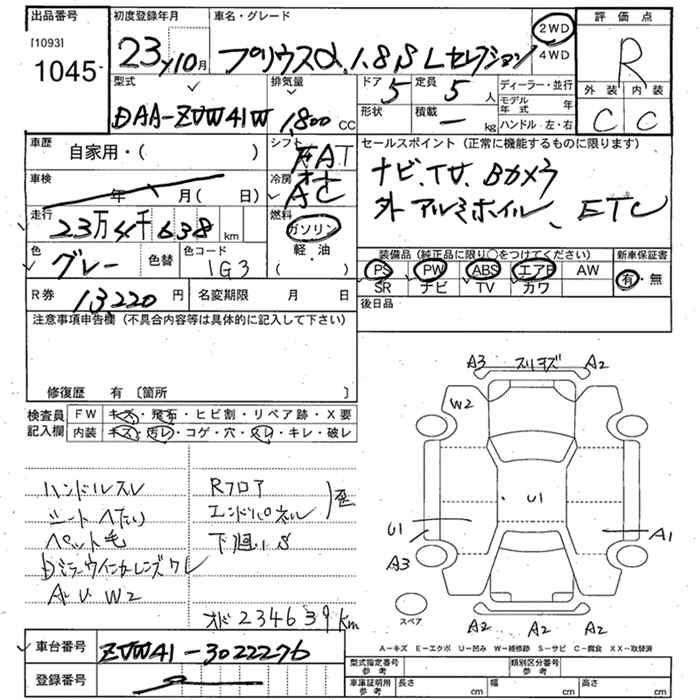 出品番号
[1093]
1045-
初度登録年月
23年10月
車名・グレード
プリウスα 1.8 S Lセレクション
2WD
4WD
評価点
R
外装 内装
C C
型式
DAA-ZVW41W
排気量
1,800 CC
ドア 5
形状
定員 5 人
積載 — kg
ディーラー・並行
モデル年式 年
ハンドル 左・右
車歴
自家用・( )
シフト
FAT
車検
年 月(日)
冷房
AC
走行
23万4千638 km
燃料
ガソリン
軽・油
( )
色
グレー
色替
色コード
1G3
セールスポイント(正常に機能するものに限ります)
ナビ、TV、Bカメラ
外アルミホイル、ETC
装備品(純正品に限り〇をつけてください)
新車保証書
PS PW ABS エアB AW
SR ナビ TV カワ
有・無
後日品
R券 13,220 円
名変期限 月 日
注意事項申告欄(不具合内容等は具体的に記入して下さい)
修復歴 有 〔箇所 〕
検査員記入欄
FW キズ・飛石・ヒビ割・リペア跡・X要
内装 キズ・汚レ・コゲ・穴・スレ・キレ・破レ
ハンドルスレ
シートヘたり
ペット毛
Dミラーウインカーレンズワレ
A U W2
Rフロア
エンドパネル
歪
下廻りS
オド234639km
A3 スリキズ A2
W2
U1
U1
A1
A3
A2 A2 A2
スペア
車台番号
ZVW41-3022276
登録番号
A-キズ E-エクボ U-凹み W-補修跡 S-サビ C-腐食 XX-取替済
型式指定番号
参考
類別区分番号
参考
車庫証明用
参考
長さ cm 幅 cm 高さ cm